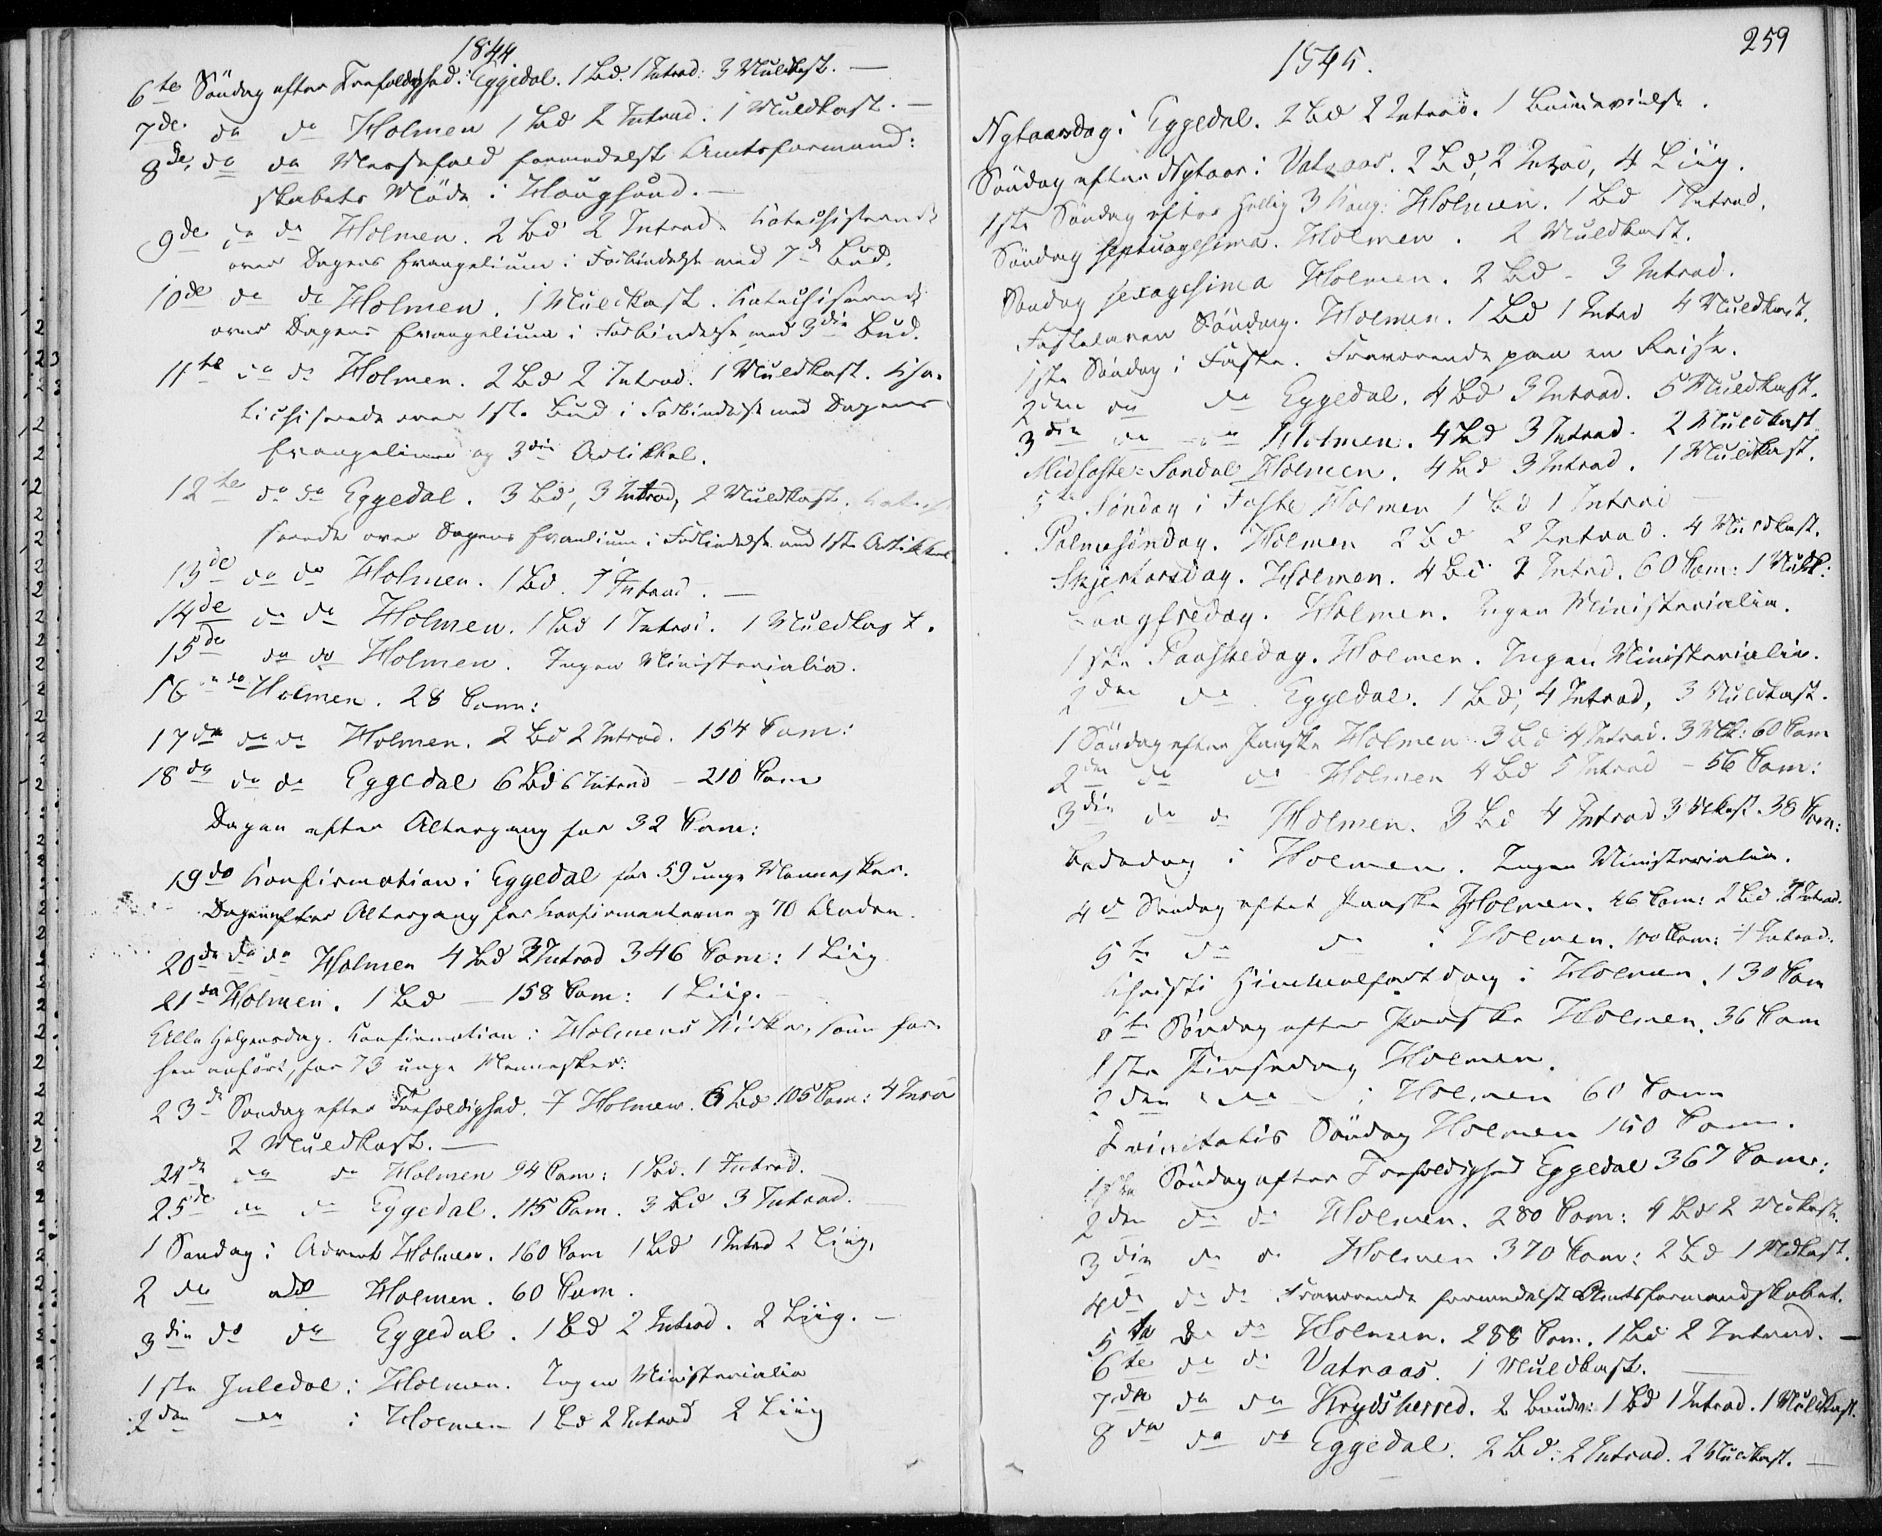 1844.
6te Söndag efter Trefoldighed i Eggedal. 1 Bd. 1 Introd: 3 Muldkast. —
7de do do Holmen 1 Bd 2 Introd. 1 Muldkast. —
8de do do Messefald formedelst Amtsformand:
skabets Möde i Hougsund. —
9de do do Holmen. 2 Bd 2 Introd. Katechiserende
over Dagens Evangelium i Forbindelse med 7de Bud.
10de do do Holmen. 1 Muldkast. Katechiserende
over Dagens Evangelium i Forbindelse med 3die Bud.
11te do do Holmen. 2 Bd 2 Introd. 1 Muldkast. Cha-
techiserede over 1ste Bud i Forbindelse med Dagens
Evangelium og 3die Artikkel.
12te do do Eggedal. 3 Bd, 3 Introd, 2 Muldkast. Katechi-
serede over Dagens Evanlium i Forbindelse med 1ste Artikkel
13de do do Holmen. 1 Bd. 1 Introd. —
14de do do Holmen. 1 Bd 1 Introd. 1 Muldkast.
15de do do Holmen. Ingen Ministerialia.
16 do Holmen. 28 Com:
17de do do Holmen. 2 Bd 2 Introd. 154 Com:
18de do do Eggedal 6 Bd 6 Introd — 210 Com
Dagen efter Altergang for 32 Com:
19de Confirmation i Eggedal for 59 unge Mennesker.
Dagen efter Altergang for Confirmanterne og 70 Andre.
20de do do Holmen 4 Bd 3 Introd 346 Com: 1 Liig
21de Holmen. 1 Bd — 158 Com: 1 Liig. —
Alle Helgensdag. Confirmation i Holmens Kirke, som for-
hen anfört, for 73 unge Mennesker.
23de Söndag efter Trefoldighed. Holmen. 6 Bd 105 Com: 4 Introd
2 Muldkast. —
24de do do Holmen 94 Com: 1 Bd. 1 Introd.
25de do do Eggedal. 115 Com. 3 Bd 3 Introd. —
1 Söndag i Advent Holmen. 160 Com 1 Bd 1 Introd 2 Liig.
2den do Holmen. 60 Com.
3die do do Eggedal. 1 Bd 2 Introd. 2 Liig. —
1ste Juledal i Holmen. Ingen Ministerialia
2den do i Holmen 1 Bd 2 Introd 2 Liig
259
1845.
Nytaarsdag i Eggedal. 2 Bd 2 Introd. 1 Brudevielse.
Söndag efter Nytaar i Vatnaas. 2 Bd, 2 Introd, 4 Liig.
1ste Söndag efter Hellig 3 Kong: Holmen. 1 Bd 1 Introd.
Söndag septuagesima. Holmen. 2 Muldkast.
Söndag sexagesima Holmen. 2 Bd - 3 Introd.
Fastelavns Söndag. Holmen. 1 Bd 1 Introd 4 Muldkast.
1ste Söndag i Faste. Fraværende paa en Reise.
2den do do Eggedal. 4 Bd 3 Introd. 5 Muldkast.
3die do do Holmen. 4 Bd 3 Introd. 2 Muldkast
Midfaste-Söndal Holmen. 4 Bd 3 Introd. 1 Muldkast.
5te Söndag i Faste Holmen 1 Bd 1 Introd —
Palmesöndag. Holmen 2 Bd 2 Introd. 4 Muldkast.
Skjertorsdag. Holmen. 4 Bd 2 Introd. 60 Com: 1 Muldk:
Langfredag. Holmen. Ingen Ministerialia.
1ste Paaskedag. Holmen. Ingen Ministerialia.
2den do Eggedal. 1 Bd, 4 Introd, 3 Muldkast.
1 Söndag efter Paaske Holmen 3 Bd 4 Introd. 3 Mk: 60 Com
2den do do Holmen 4 Bd 5 Introd — 56 Com:
3die do do Holmen. 3 Bd 4 Introd 3 Mkast. 38 Com:
Bededag i Holmen. Ingen Ministerialia.
4de Söndag efter Paaske Holmen. 46 Com: 2 Bd 2 Introd.
5te do do i Holmen. 100 Com: 1 Introd.
Christi Himmelfartsdag i Holmen. 130 Com
6te Söndag efter Paaske Holmen. 36 Com
1ste Pintsedag Holmen.
2den do i Holmen 60 Com
Trinitatis Söndag Holmen 150 Com.
1ste Söndag efter Trefoldighed Eggedal 367 Com:
2den do do Holmen. 280 Com: 4 Bd 2 Mdkast.
3die do do Holmen 370 Com: 2 Bd 1 Mdkast.
4de do do Fraværende formedelst Amtsformandskabet.
5te do do Holmen. 288 Com. 1 Bd 2 Introd. —
6te do do Vatnaas. 1 Muldkast. —
7de do do Krydsherred. 2 Brudev: 1 Bd 1 Introd. 1 Muldkast.
8de do do Eggedal. 2 Bd: 2 Introd. 2 Muldkast. —